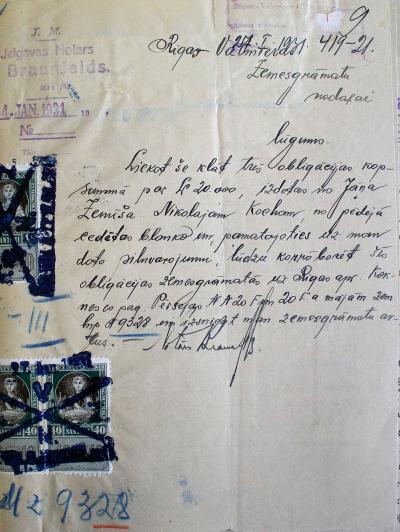 9
J. M.
Jelgavas Notārs
Braunfelds.
4. JAN. 1931 19
№
Rīgas Valmieras
1931. 419-21.
Zemesgrāmatu
nodaļai
Lūgums.
Liekot še klāt trīs obligācijas kop-
summā par Ls 20.000, izdotas no Jāņa
Zemīša Nikolajam Kocham, no pēdējā
cedētas blanko un pamatojoties uz man
doto pilnvarojumu, lūdzu korroborēt šīs
obligācijas zemesgrāmatās uz Rīgas apr. Kok-
neses pag. A A 20 F un 20 F a mājām zem
hip. № 9328 un izsniegt man zemesgrāmatu ak-
tus. Notārs
III
40 40
M z 9328